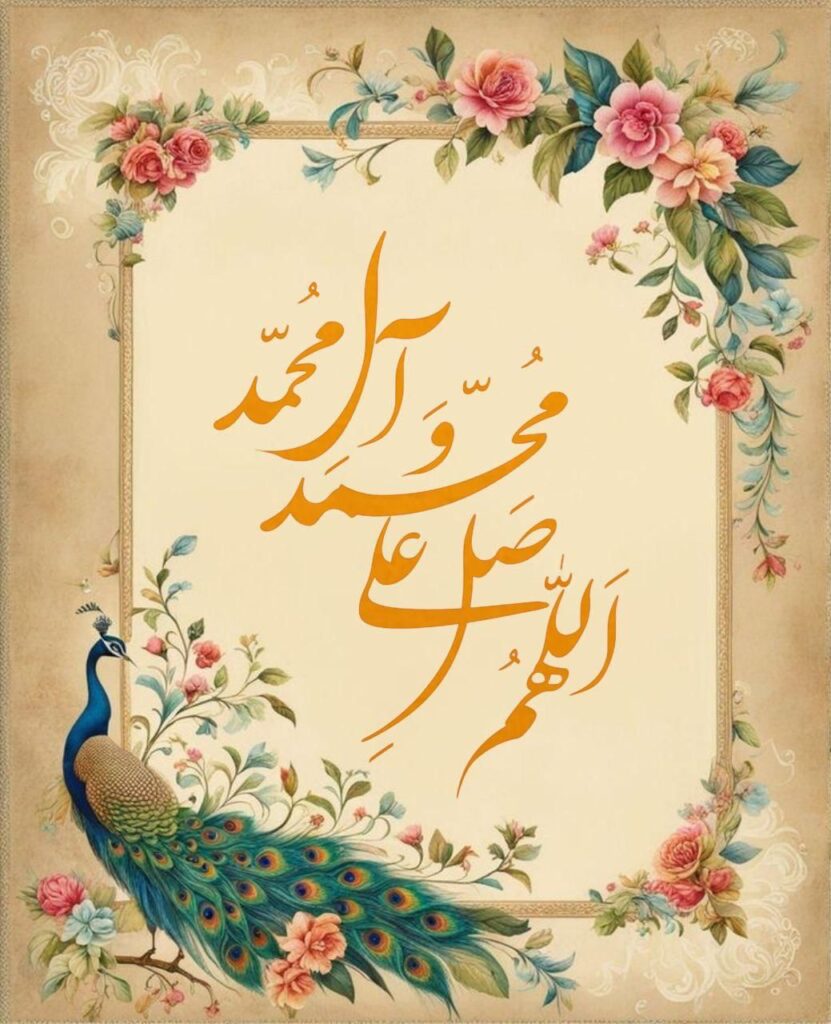 اَللّٰهُمَّ صَلِّ عَلی
مُحَمَّد
وَ آلِ مُحَمَّد